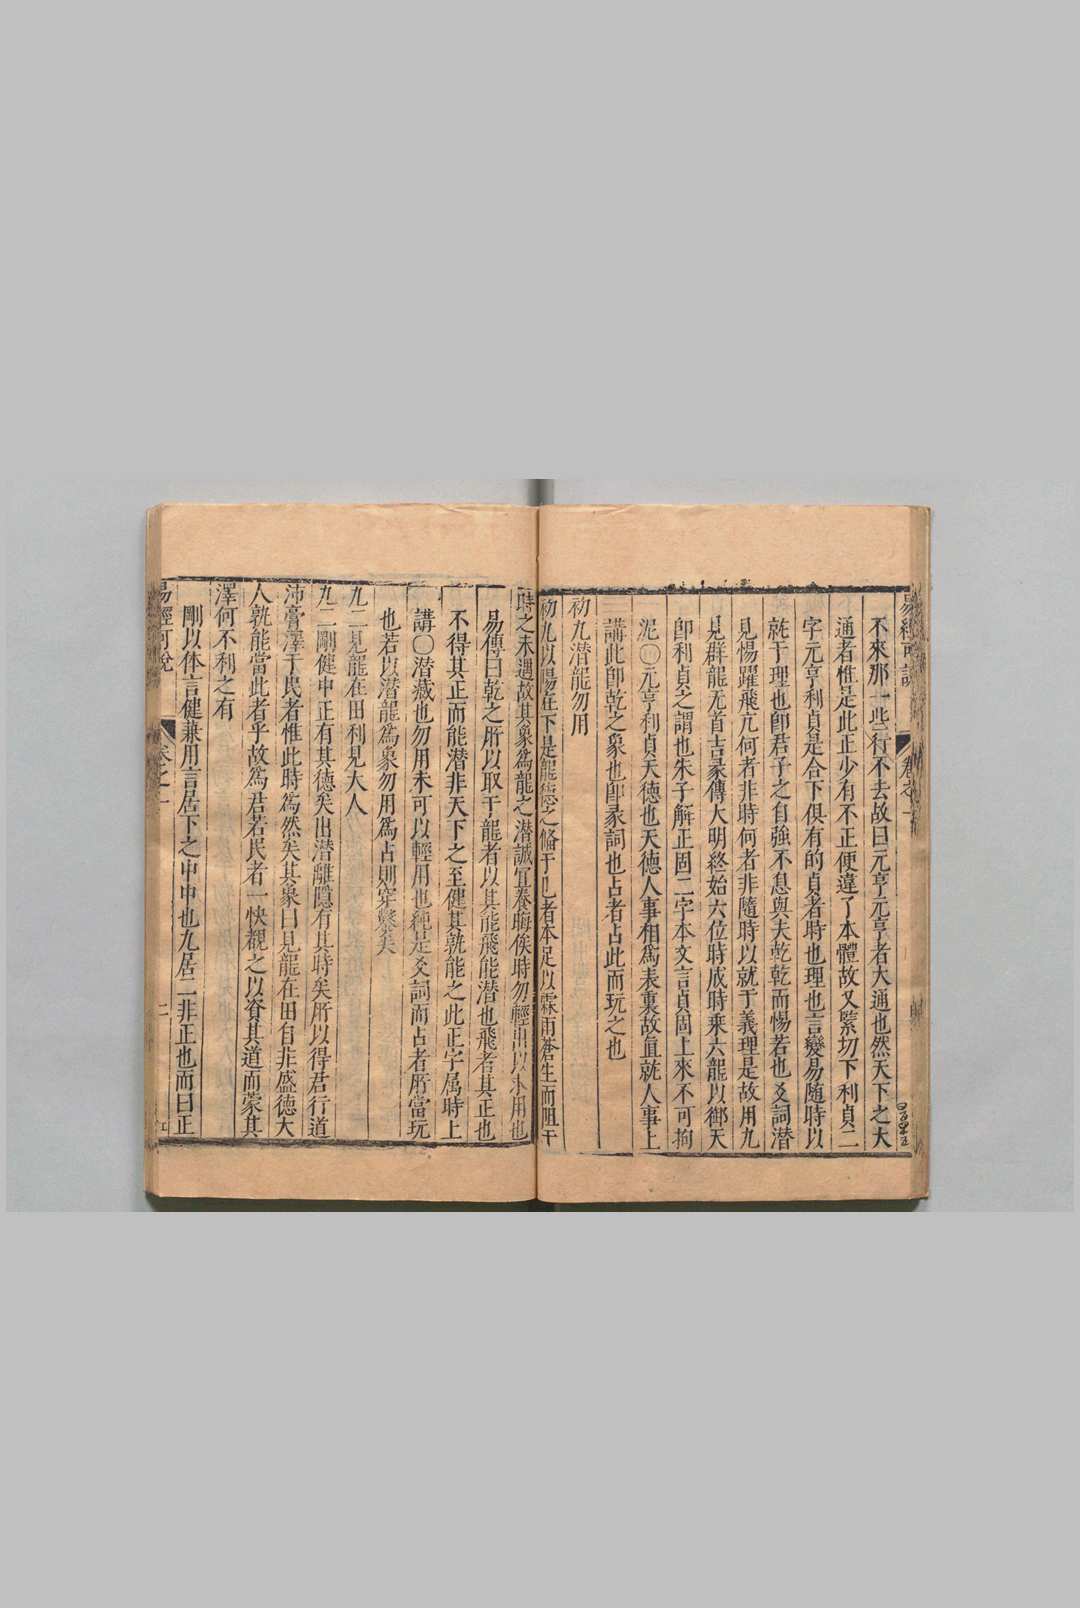 不來那一些行不去故曰元亨元亨者大通也然天下之大
通者惟是此正少有不正便違了本體故又緊切下利貞二
字元亨利貞是合下俱有的貞者時也理也言變易随時以
就于理也卽君子之自強不息與夫乾乾而惕若也爻詞潜
見惕躍飛亢何者非時何者非隨時以就于義理是故用九
見群龍无首吉彖傳大明終始六位時成時乘六龍以御天
卽利貞之謂也朱子解正固二字本文言貞固上來不可拘
泥〇元亨利貞天德也天德人事相爲表裏故直就人事上
講此卽乾之象也卽彖詞也占者占此而玩之也
初九潜龍勿用
初九以陽在下是龍德之脩于己者本足以霖雨蒼生而阻于
時之未遇故其象爲龍之潜誠宜養晦俟時勿輕出以求用也
易傳曰乾之所以取于龍者以其能飛能潜也飛者其正也
不得其正而能潜非天下之至健其孰能之此正字属時上
講〇潜藏也勿用未可以輕用也純是爻詞而占者所當玩
也若以潜龍爲象勿用爲占則穿鑿矣
九二見龍在田利見大人
九二剛健中正有其德矣出潜離隱有其時矣所以得君行道
沛膏澤于民者惟此時爲然矣其象曰見龍在田自非盛德大
人孰能當此者乎故爲君若民者一快覩之以資其道而蒙其
澤何不利之有
剛以体言健兼用言居下之中中也九居二非正也而曰正
易經可說 卷之一 二